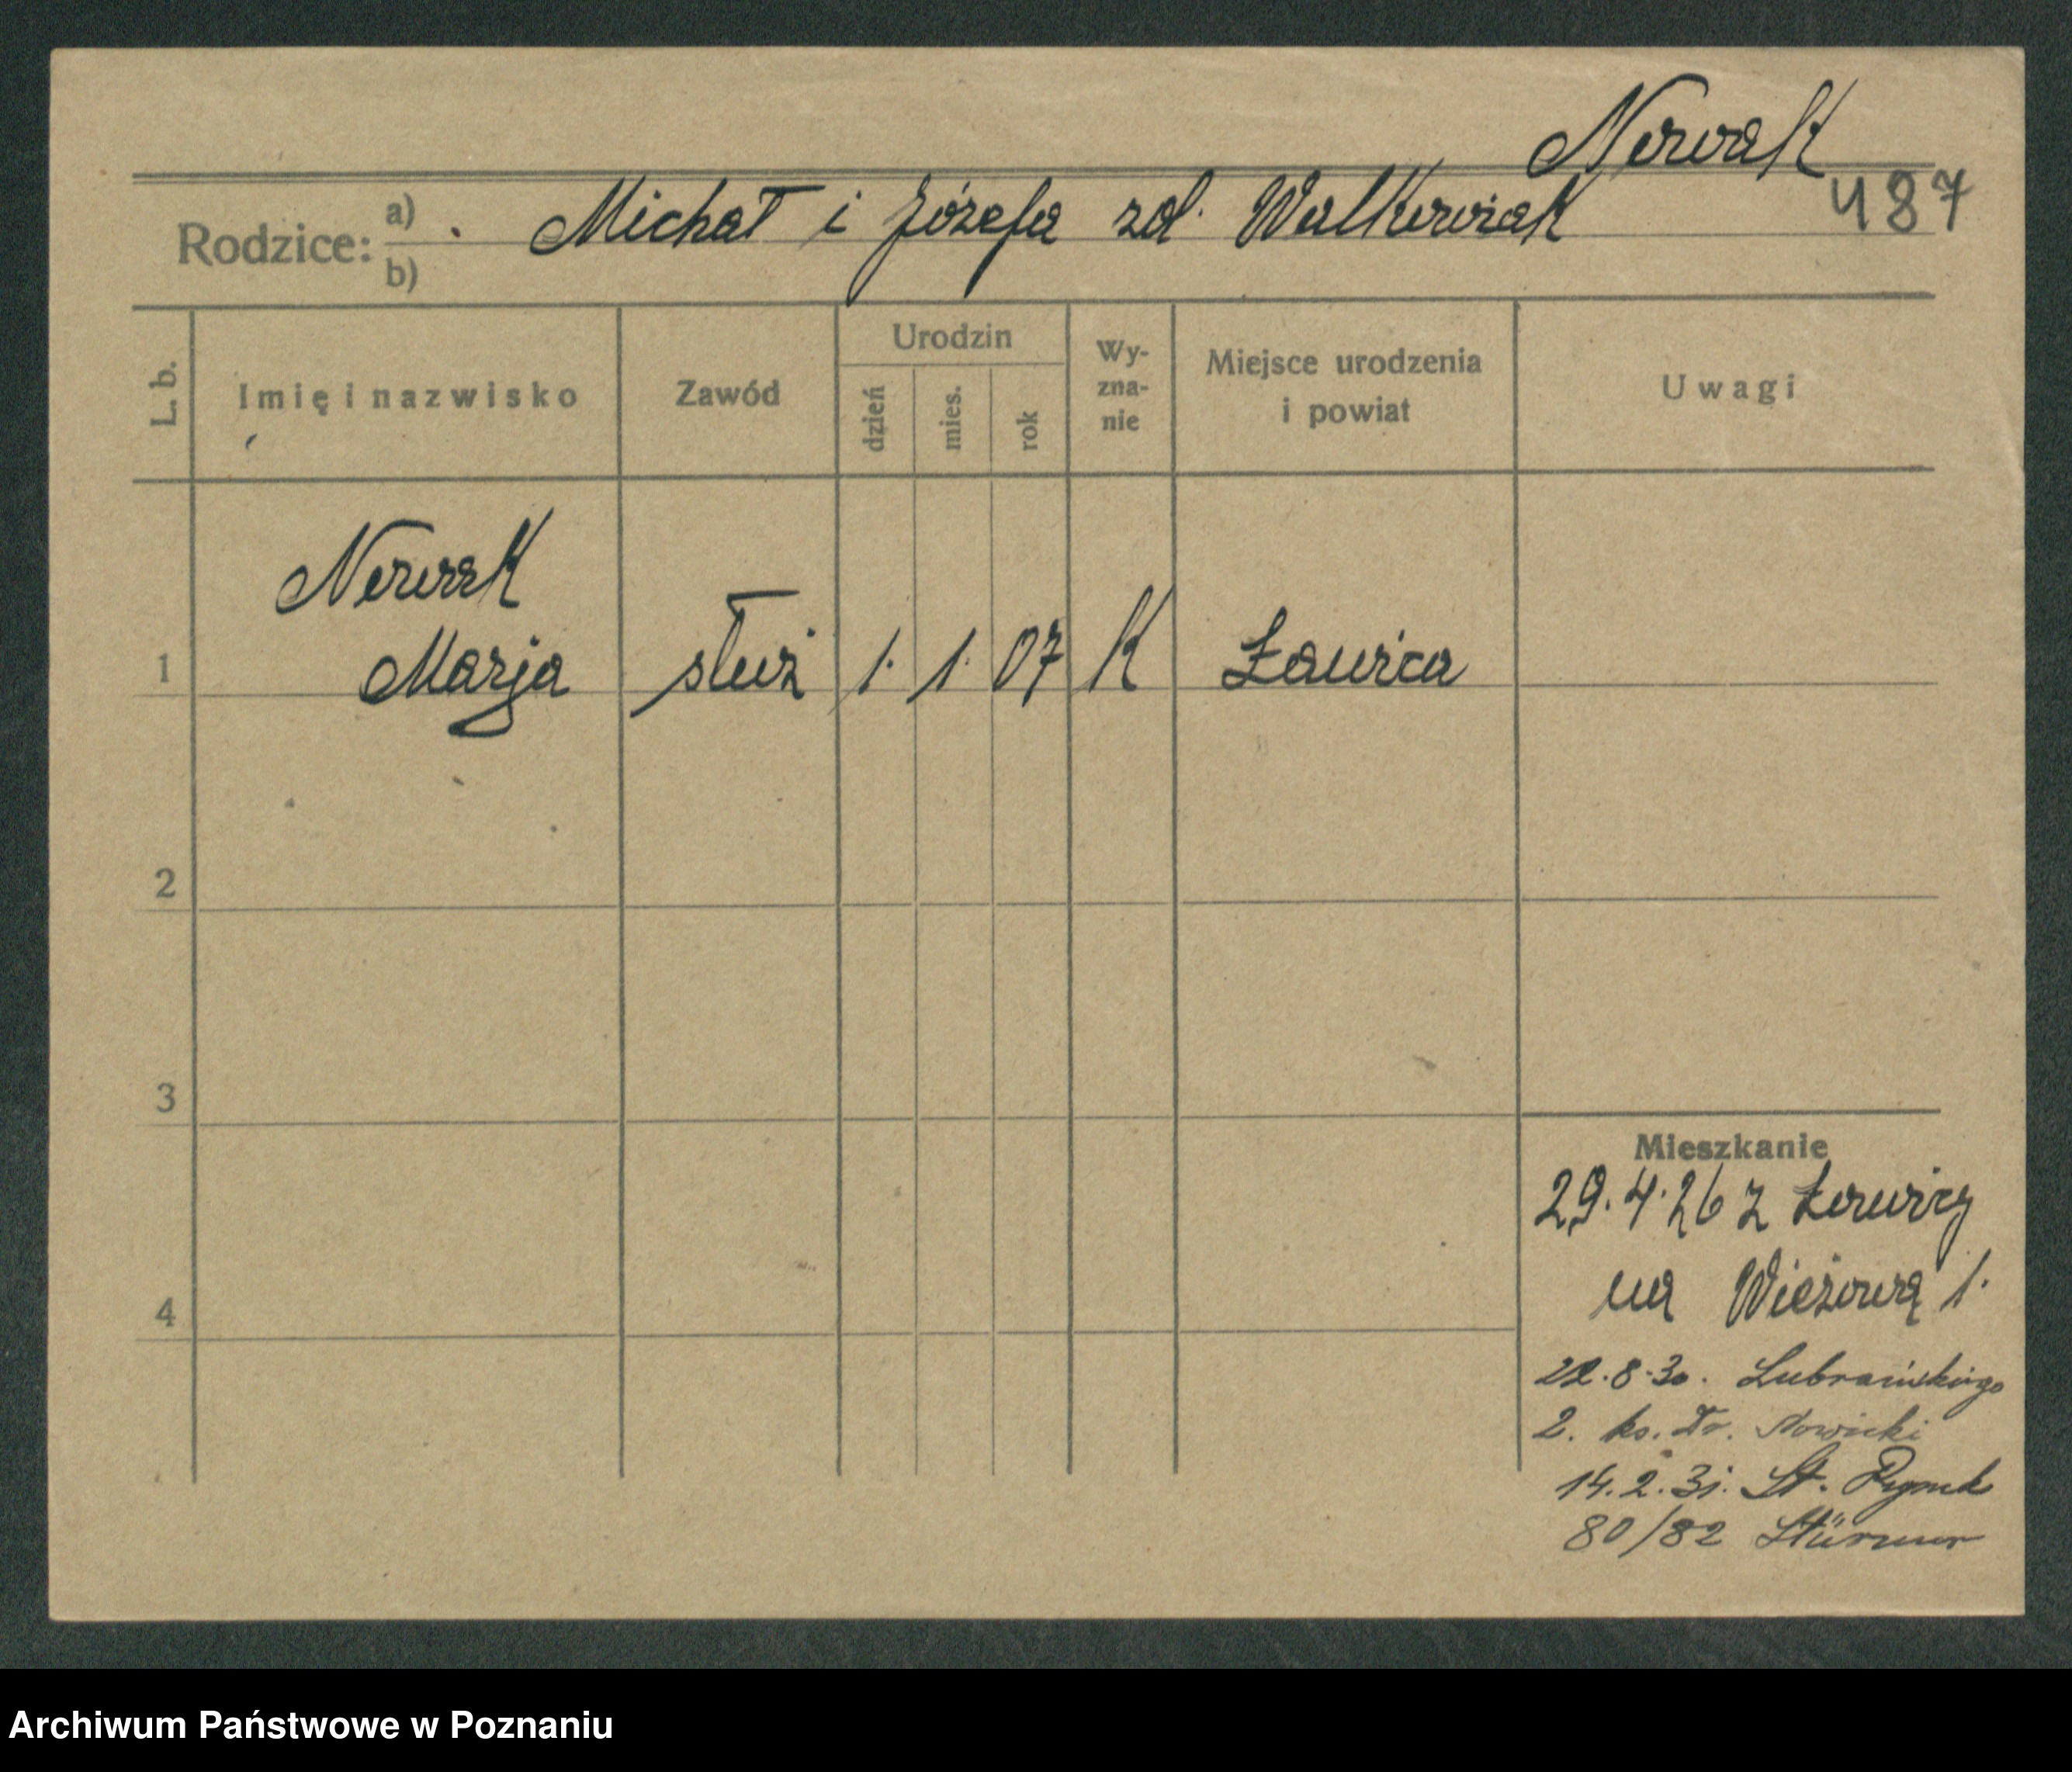 Nowak
487
Rodzice: a) Michał i Józefa zd. Walkowiak
b)
L. b.
Imię i nazwisko
Zawód
Urodzin
dzień
mies.
rok
Wy-
zna-
nie
Miejsce urodzenia
i powiat
Uwagi
Nowak
1 Marja służ 1. 1. 07 K Ławica
2
3
4
Mieszkanie
29.4.26 z Ławicy
na Wieżową 1.
22.8.30. Lubrańskiego
2. ks. Dr. Nowicki
14.2.31. St. Rynek
80/82 Stürmer
Archiwum Państwowe w Poznaniu